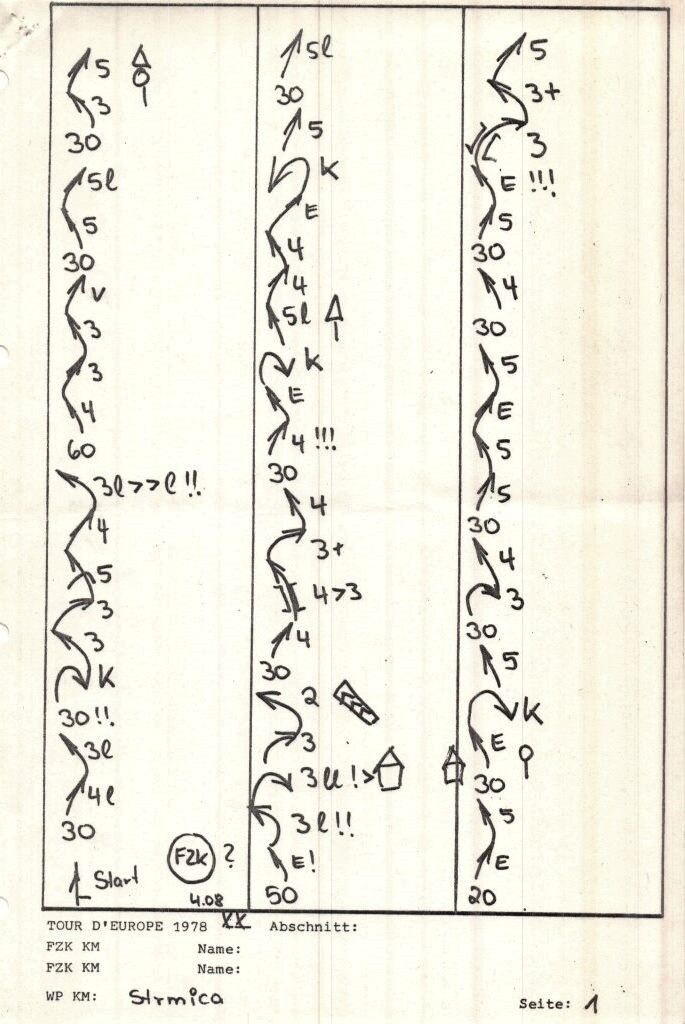 5
3
30
5l
5
30
v
3
3
4
60
3l>>l!!
4
5
3
3
K
30!!
3l
4l
30
FZK ?
Start
4.08
5l
30
5
K
E
4
4
5l
K
E
4!!!
30
4
3+
4>3
4
30
2
3
3ll!>
3l!!
E!
50
5
3+
3
E!!!
5
30
4
30
5
E
5
5
30
4
3
30
5
K
E
30
5
E
20
TOUR D'EUROPE 1978 XX Abschnitt:
FZK KM Name:
FZK KM Name:
WP KM: Strmica
Seite: 1